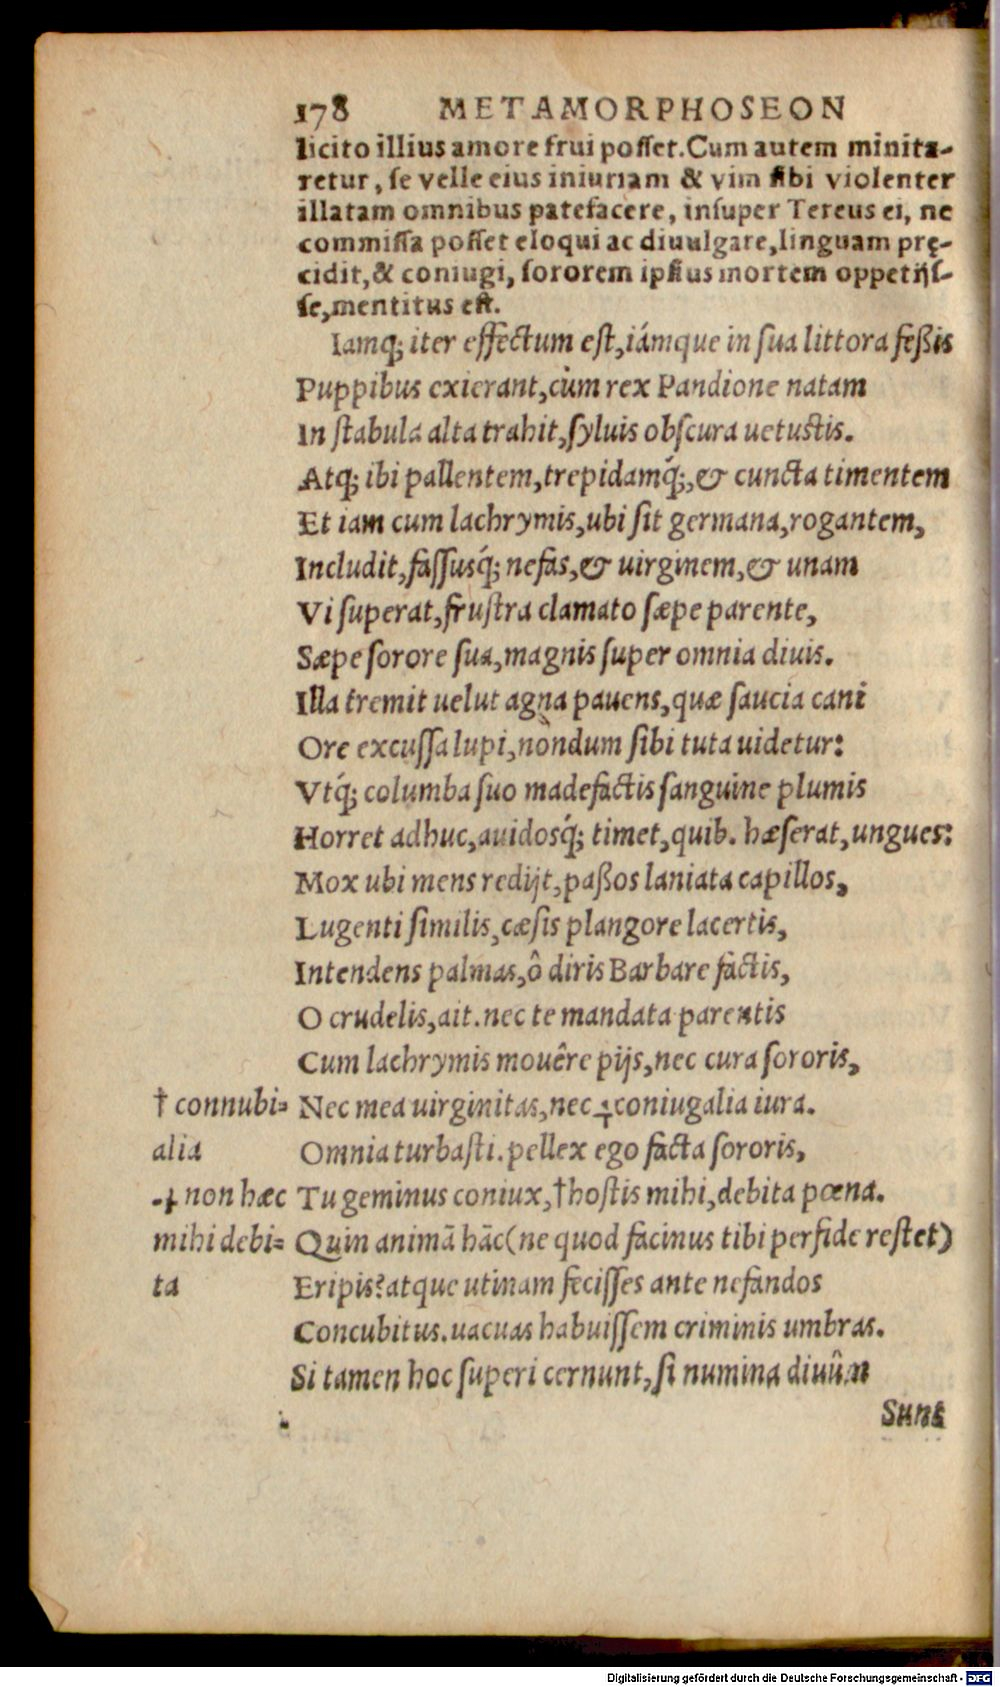 178 METAMORPHOSEON
licito illius amore frui poſſet. Cum autem minita-
retur, ſe velle eius iniuriam & vim ſibi violenter
illatam omnibus patefacere, inſuper Tereus ei, ne
commiſſa poſſet eloqui ac diuulgare, linguam prę-
cidit, & coniugi, ſororem ipſius mortem oppetijſ-
ſe, mentitus eſt.
Iamq; iter effectum eſt, iámque in ſua littora feßis
Puppibus exierant, cùm rex Pandione natam
In ſtabula alta trahit, ſyluis obſcura uetuſtis.
Atq; ibi pallentem, trepidamq́;, & cuncta timentem
Et iam cum lachrymis, ubi ſit germana, rogantem,
Includit, faſſusq́; nefas, & uirginem, & unam
Vi ſuperat, fruſtra clamato ſæpe parente,
Sæpe ſorore ſua, magnis ſuper omnia diuis.
Illa tremit uelut agna pauens, quæ ſaucia cani
Ore excuſſa lupi, nondum ſibi tuta uidetur:
Vtq́; columba ſuo madefactis ſanguine plumis
Horret adhuc, auidosq́; timet, quib. hæſerat, ungues:
Mox ubi mens redijt, paßos laniata capillos,
Lugenti ſimilis, cæſis plangore lacertis,
Intendens palmas, ô diris Barbare factis,
O crudelis, ait. nec te mandata parentis
Cum lachrymis mouêre pijs, nec cura ſororis,
† connubi= Nec mea uirginitas, nec ⸓coniugalia iura.
alia Omnia turbaſti. pellex ego facta ſororis,
⸓ non hæc Tu geminus coniux, †hoſtis mihi, debita pœna.
mihi debi= Quin animā hāc (ne quod facinus tibi perfide reſtet)
ta Eripis? atque utinam feciſſes ante nefandos
Concubitus. uacuas habuiſſem criminis umbras.
Si tamen hoc ſuperi cernunt, ſi numina diuûm
Sunt
Digitalisierung gefördert durch die Deutsche Forschungsgemeinschaft - DFG